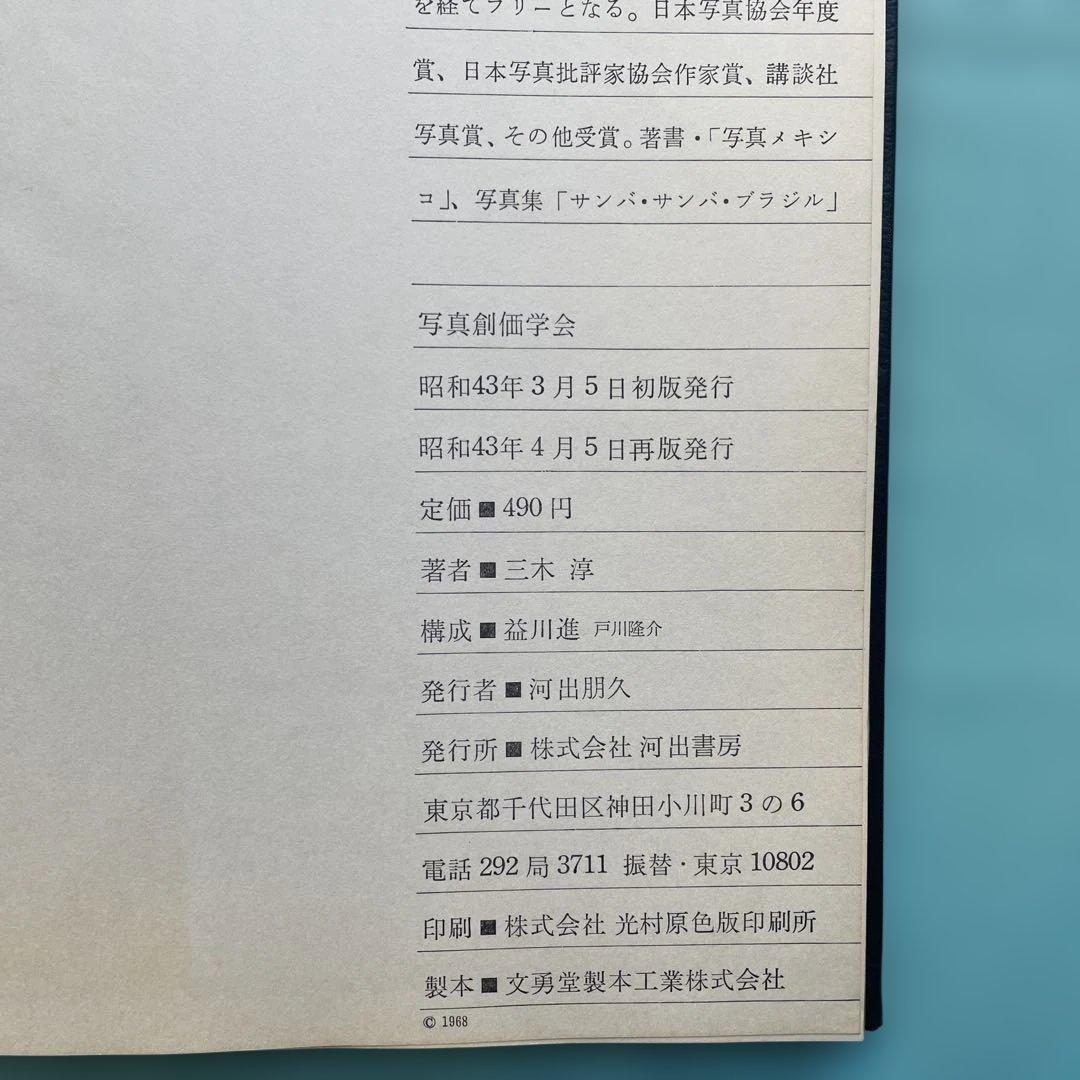 を経てフリーとなる。日本写真協会年度
賞、日本写真批評家協会作家賞、講談社
写真賞、その他受賞。著書・「写真メキシ
コ」、写真集「サンバ・サンバ・ブラジル」
写真創価学会
昭和43年3月5日初版発行
昭和43年4月5日再版発行
定価■490円
著者■三木 淳
構成■益川進 戸川隆介
発行者■河出朋久
発行所■株式会社 河出書房
東京都千代田区神田小川町3の6
電話 292局3711 振替・東京10802
印刷■株式会社 光村原色版印刷所
製本■文勇堂製本工業株式会社
© 1968